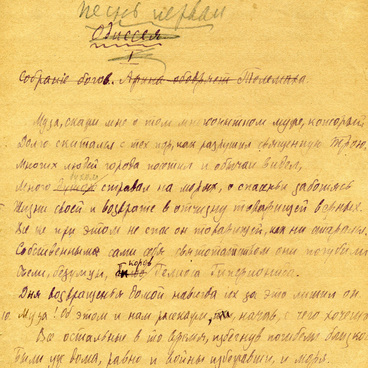 Песнь первая
Одиссея
I
Собрание богов. Афина ободряет Телемаха
Муза, скажи мне о том многоопытном муже, который
Долго скитался с тех пор, как разрушил священную Трою,
Многих людей города посетил и обычаи видел,
Много духом страдал на морях, о спасеньи заботясь
Жизни своей и возврате в отчизну товарищей верных.
Все же при этом не спас он товарищей, как ни старался.
Собственным сами себя святотатством они погубили:
Съели, безумцы, коров Гелиоса Гиперионида.
Дня возвращенья домой навсегда их за это лишил он.
10. Муза! Об этом и нам расскажи, начав с чего хочешь
Все остальные в то время, избегнув погибели близкой
Были уж дома, равно и войны избежавши, и моря.